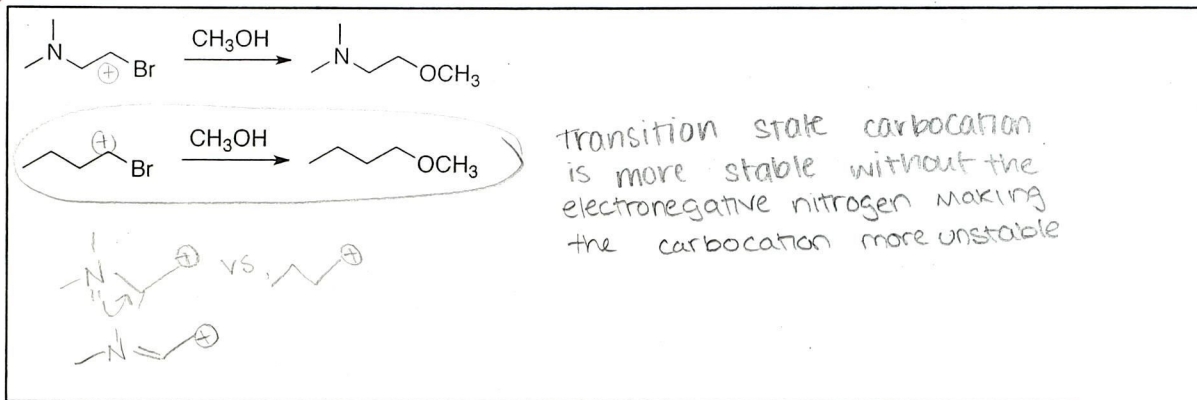 N
CH3OH
N
+ Br
OCH3
+
CH3OH
Br
OCH3
transition state carbocation
is more stable without the
electronegative nitrogen making
the carbocation more unstable
N + vs. +
N +